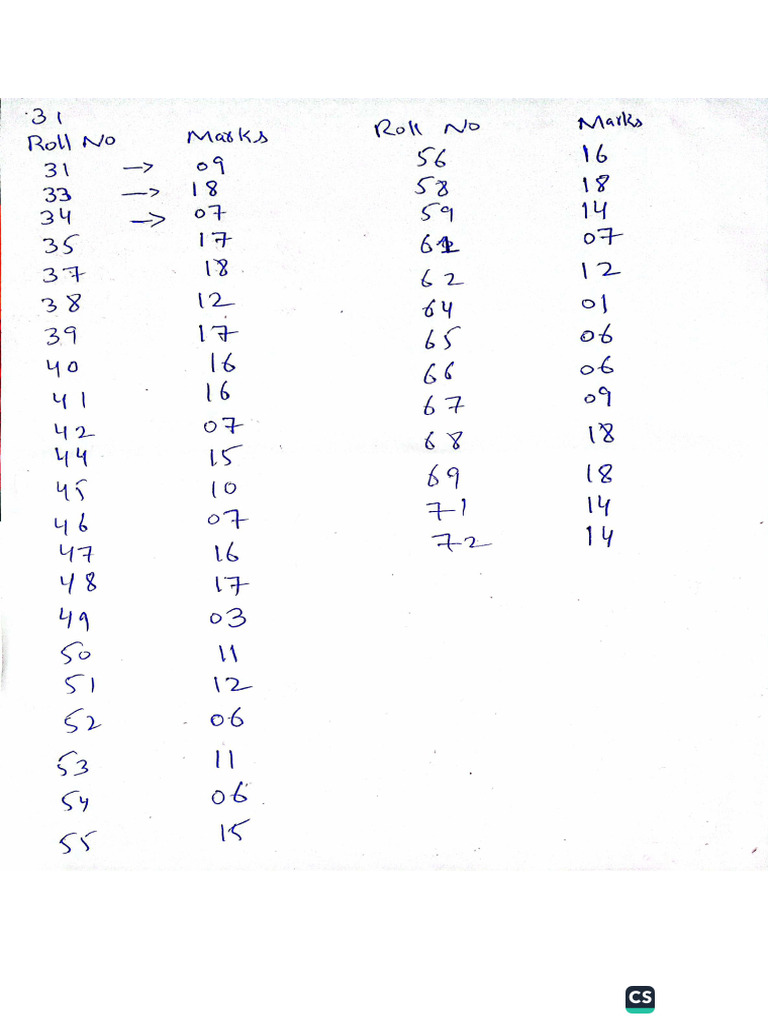 31
Roll No Marks
31 → 09
33 → 18
34 → 07
35 17
37 18
38 12
39 17
40 16
41 16
42 07
44 15
45 10
46 07
47 16
48 17
49 03
50 11
51 12
52 06
53 11
54 06
55 15
Roll No Marks
56 16
58 18
59 14
61 07
62 12
64 01
65 06
66 06
67 09
68 18
69 18
71 14
72 14
CS